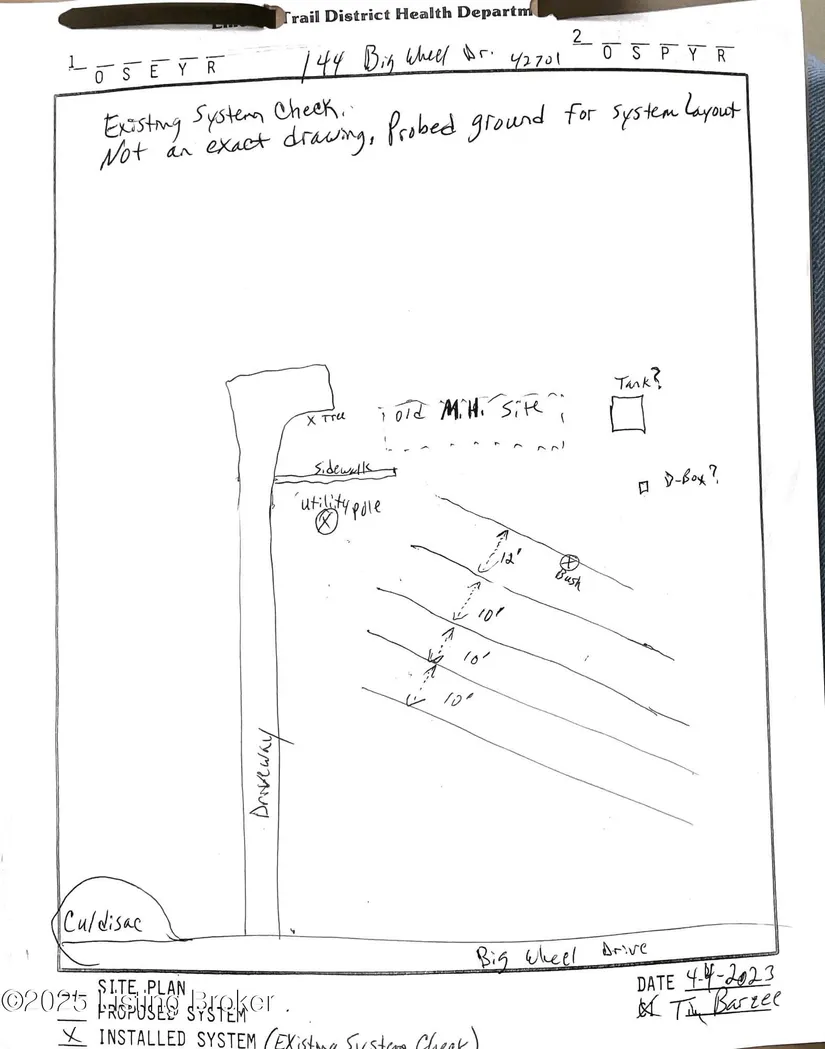 Trail District Health Departm
1 O S E Y R
144 Big Wheel Dr. 42701
2 O S P Y R
Existing System Check.
Not an exact drawing, Probed ground for system Layout
Tank?
X Tree
old M.H. Site
Sidewalk
D-Box?
utility pole
X
12'
X
Bush
10'
10'
10'
Driveway
Culdisac
Big Wheel Drive
SITE PLAN
DATE 4-4-2023
©2025 Listing Broker
PROPOSED SYSTEM
Barzee
X INSTALLED SYSTEM (Existing System Check)